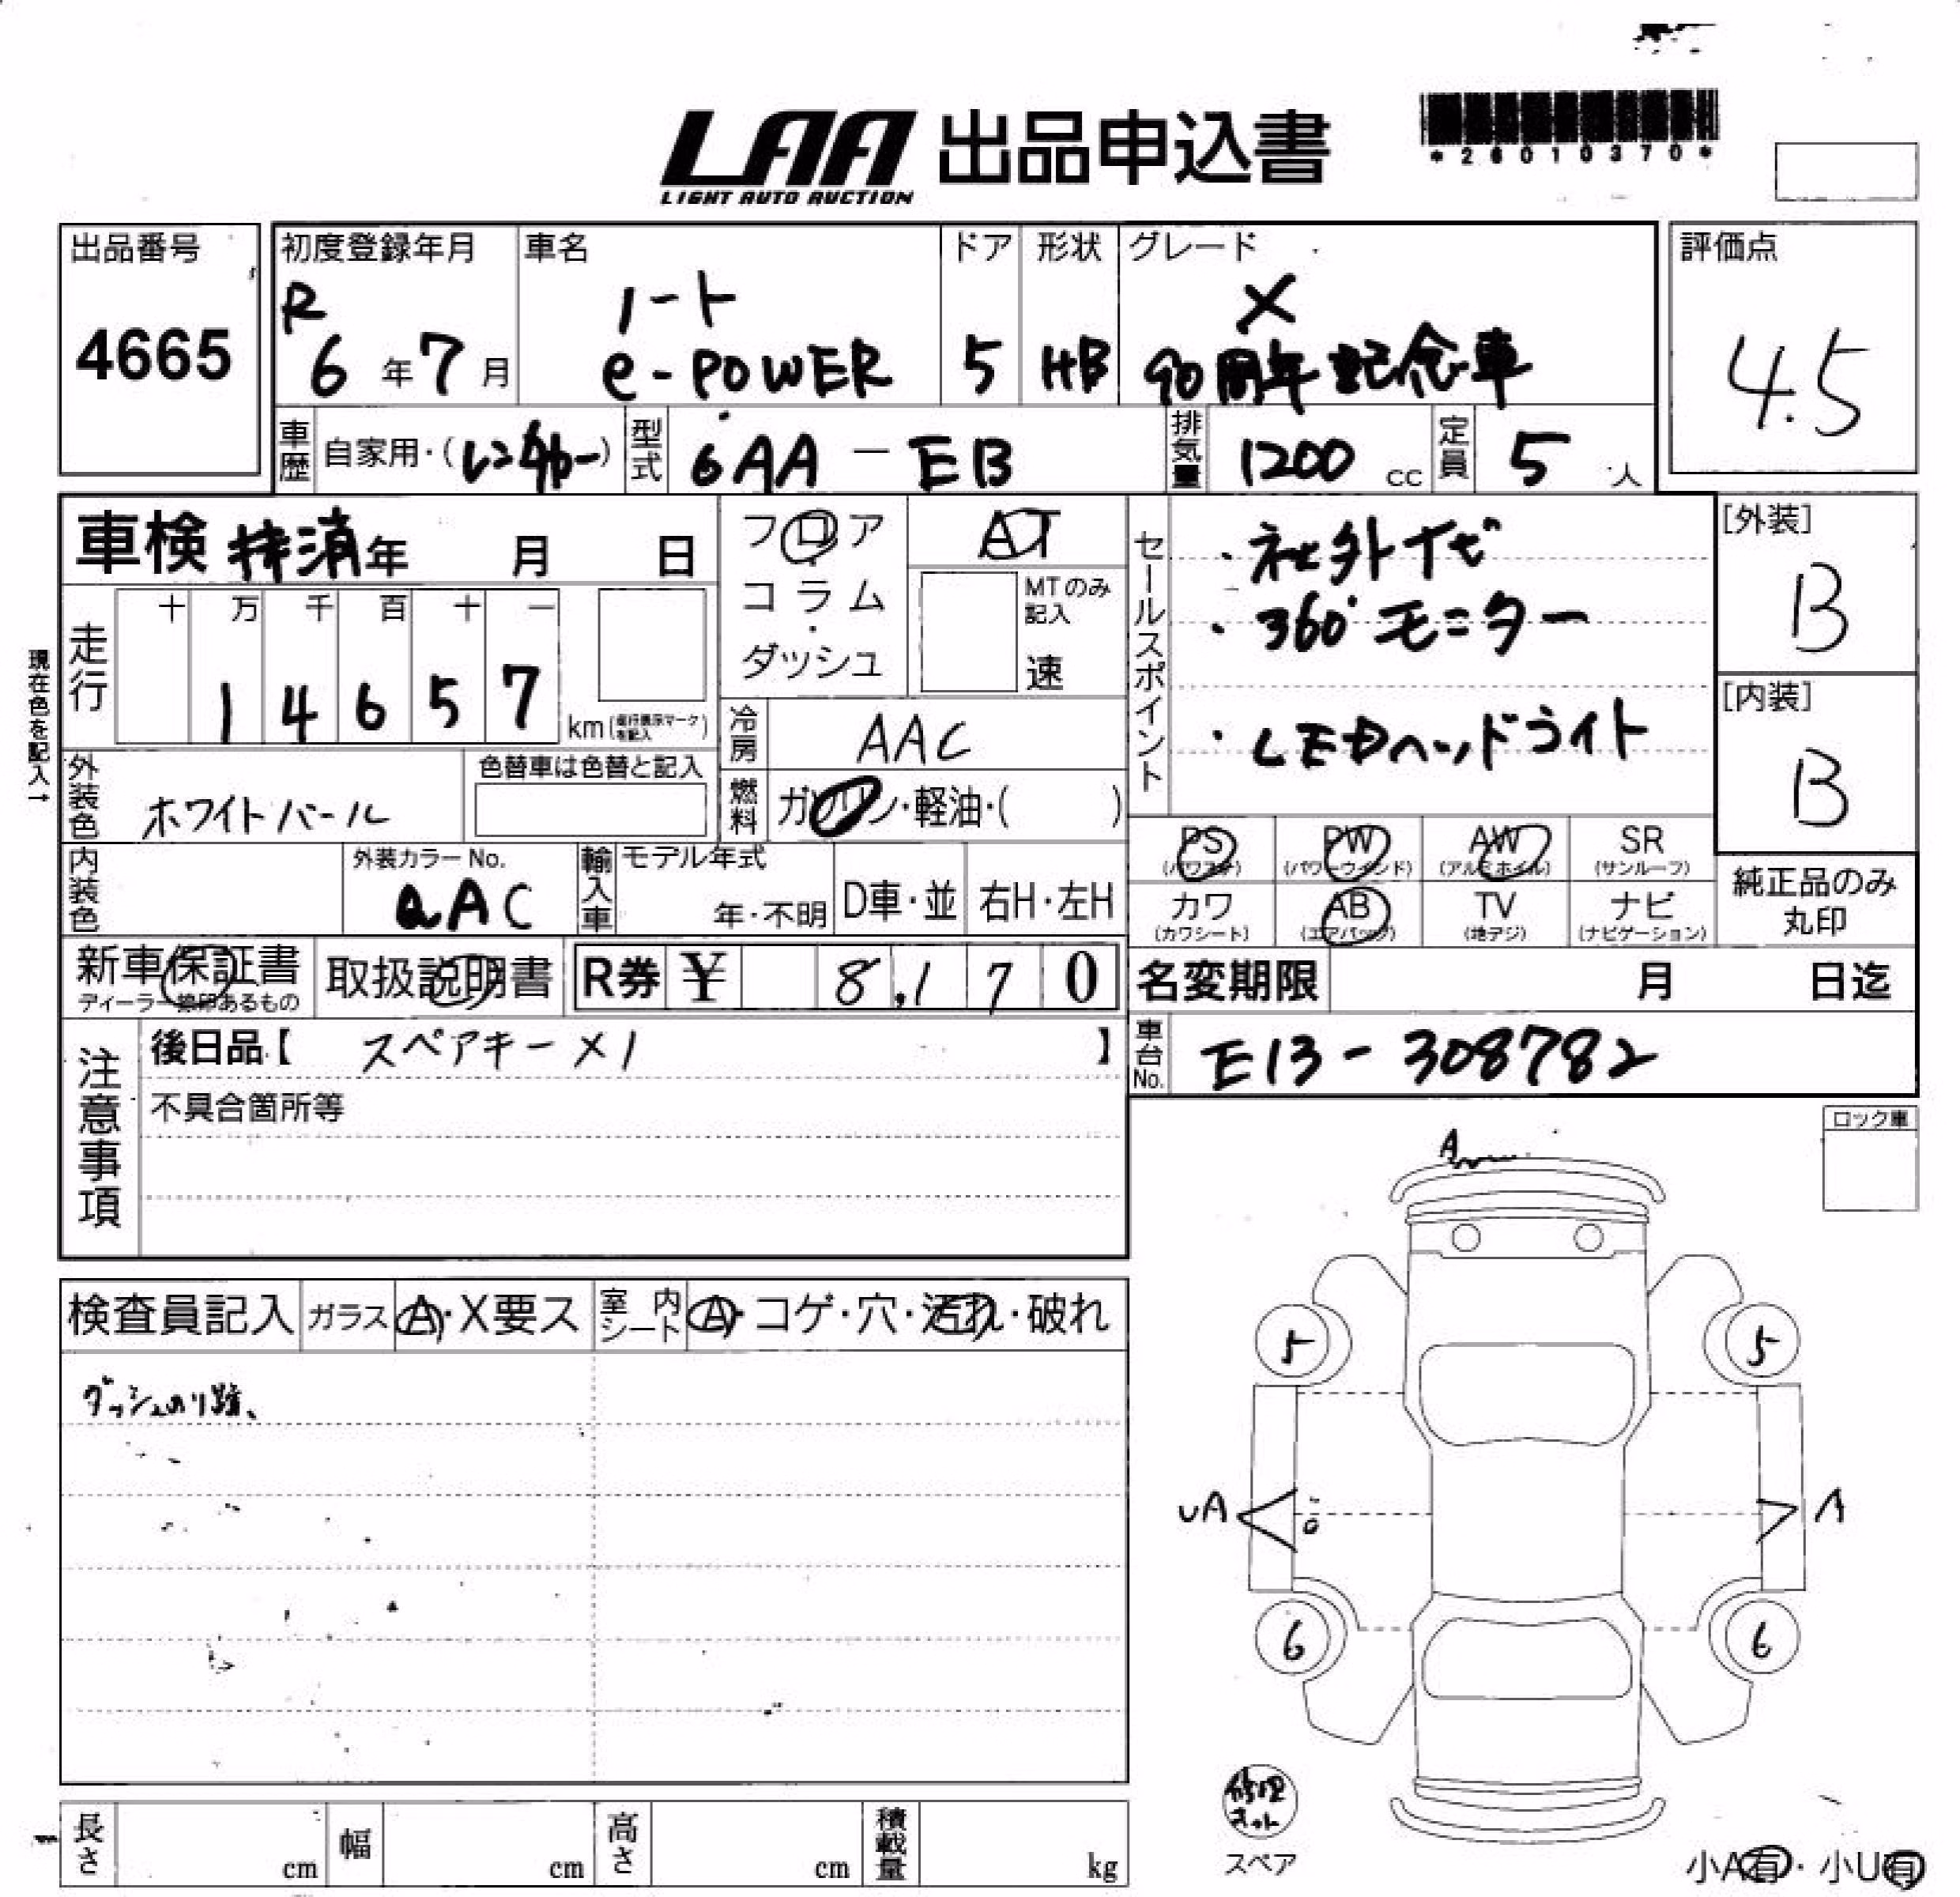 LAA 出品申込書
LIGHT AUTO AUCTION
*26010370*
出品番号
4665
初度登録年月
R
6年7月
車名
ノート
e-POWER
ドア
5
形状
HB
グレード
X
90周年記念車
評価点
4.5
車歴
自家用・(レンタカー)
型式
6AA-E13
排気量
1200 cc
定員
5 人
車検 抹消年 月 日
フロア
コラム
・
ダッシュ
AT
MTのみ記入
速
セールスポイント
・社外ナビ
・360°モニター
・LEDヘッドライト
[外装]
B
[内装]
B
現在色を記入→
走行
十 万 千 百 十 一
1 4 6 5 7
km(走行表示マークを記入)
冷房
AAC
外装色
ホワイトパール
色替車は色替と記入
燃料
ガソリン・軽油・( )
PS
(パワステ)
PW
(パワーウインド)
AW
(アルミホイル)
SR
(サンルーフ)
カワ
(カワシート)
AB
(エアバッグ)
TV
(地デジ)
ナビ
(ナビゲーション)
純正品のみ
丸印
内装色
外装カラーNo.
QAC
輸入車
モデル年式
年・不明
D車・並
右H・左H
新車保証書
ディーラー捺印あるもの
取扱説明書
R券 ¥ 8,170
名変期限 月 日迄
注意事項
後日品【 スペアキー×1 】
不具合箇所等
車台No.
E13-308782
ロック車
検査員記入
ガラス
A・X要ス
室内シート
A・コゲ・穴・汚れ・破れ
ダッシュのり跡、
A
5 5
UA
A
6 6
修理キット
スペア
小A有・小U有
長さ cm
幅 cm
高さ cm
積載量 kg